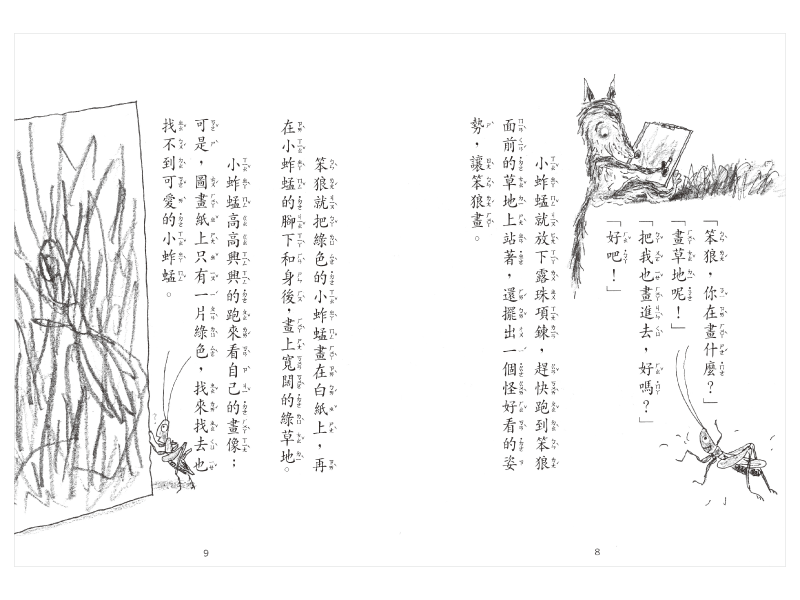 「笨狼，你在畫什麼？」
「畫草地呢！」
「把我也畫進去，好嗎？」
「好吧！」
小蚱蜢就放下露珠項鍊，趕快跑到笨狼
面前的草地上站著，還擺出一個怪好看的姿
勢，讓笨狼畫。
8
笨狼就把綠色的小蚱蜢畫在白紙上，再
在小蚱蜢的腳下和身後，畫上寬闊的綠草地。
小蚱蜢高高興興的跑來看自己的畫像；
可是，圖畫紙上只有一片綠色，找來找去也
找不到可愛的小蚱蜢。
9